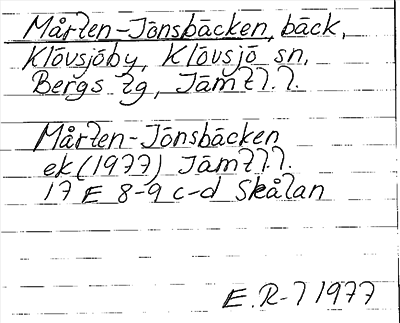 Mårten-Jönsbäcken, bäck,
Klövsjöby, Klövsjö sn,
Bergs tg, Jämtl.l.
Mårten-Jönsbäcken
ek (1977) Jämtl.l.
17 E 8-9 c-d Skålan
E.R-l 1977